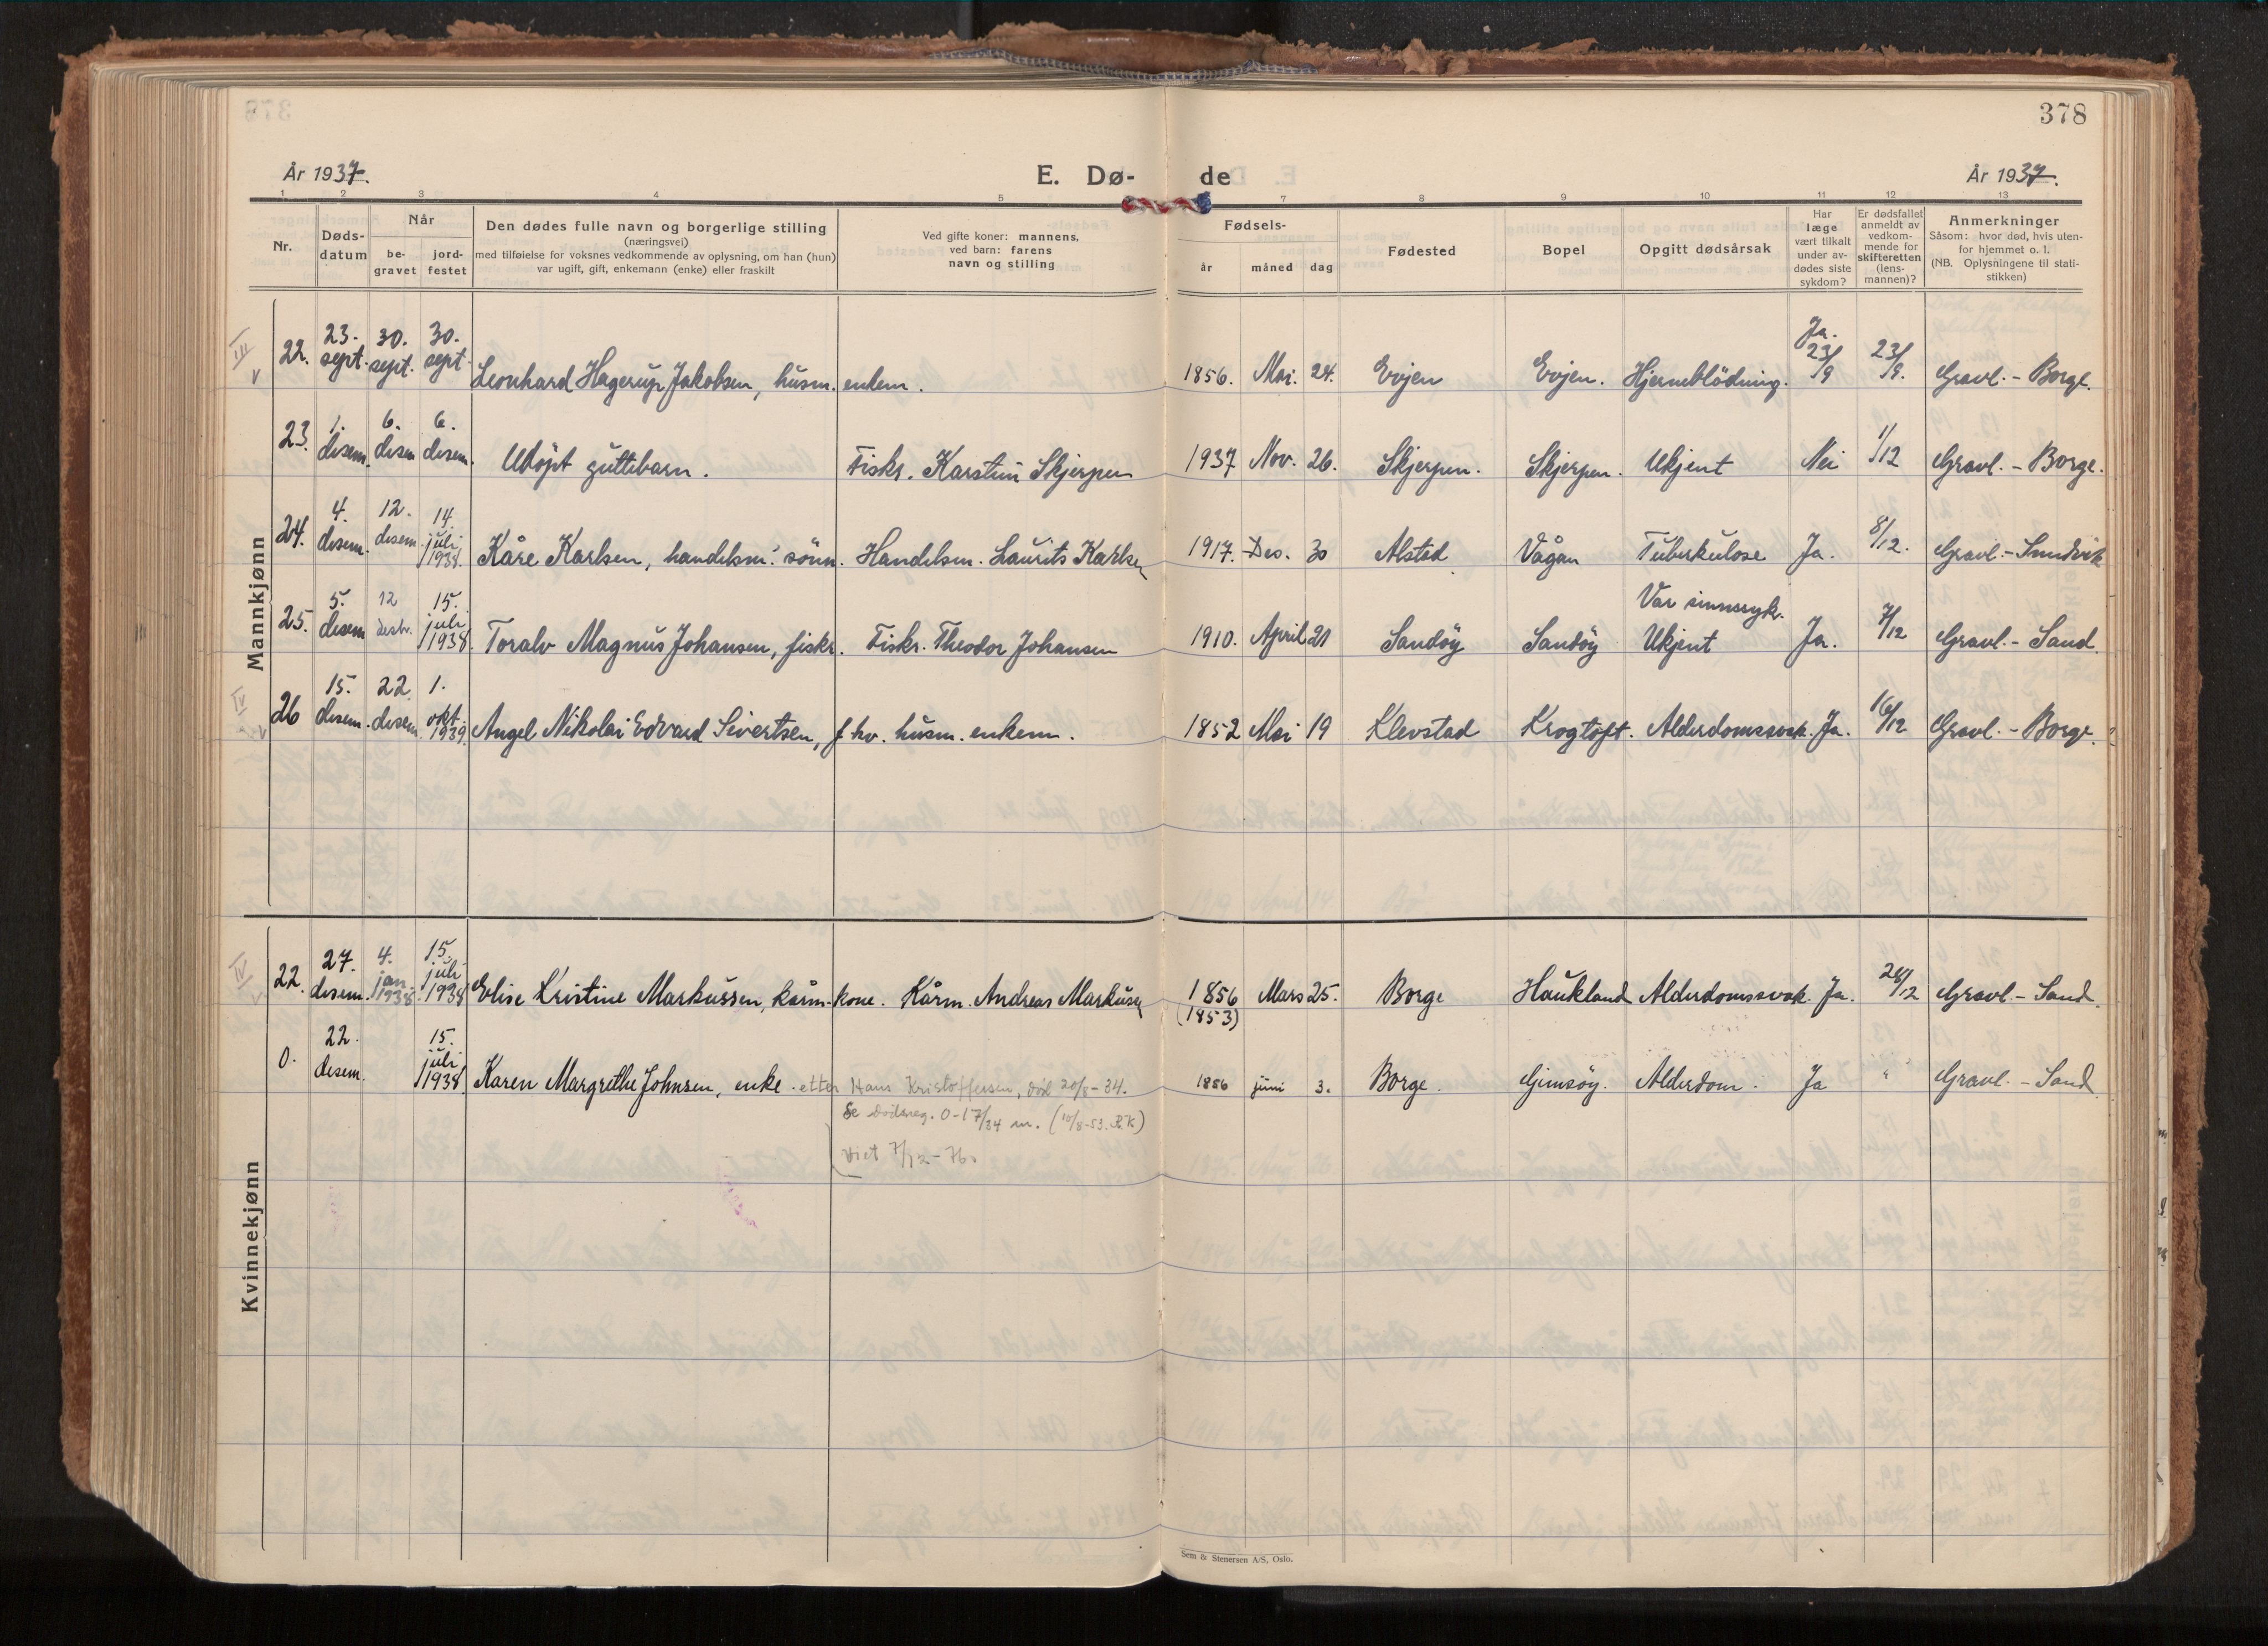 378
År 1937.
E. Dø-
de
År 1937.
1 2 3 4 5 7 8 9 10 11 12 13
Nr.
Døds-
datum
Når
be-
gravet
jord-
festet
Den dødes fulle navn og borgerlige stilling
(næringsvei)
med tilføielse for voksnes vedkommende av oplysning, om han (hun)
var ugift, gift, enkemann (enke) eller fraskilt
Ved gifte koner: mannens,
ved barn: farens
navn og stilling
Fødsels-
år måned dag
Fødested
Bopel
Opgitt dødsårsak
Har
læge
vært tilkalt
under av-
dødes siste
sykdom?
Er dødsfallet
anmeldt av
vedkom-
mende for
skifteretten
(lens-
mannen)?
Anmerkninger
Såsom: hvor død, hvis uten-
for hjemmet o. l.
(NB. Oplysningene til stati-
stikken)
Mannkjønn
III
v
22. 23. sept. 30. sept. 30. sept. Leonhard Hagerup Jakobsen, husm. enkem. 1856. Mai. 24. Evjen Evjen. Hjerneblödning. Ja. 23/9 23/9. Gravl. - Borge.
23. 1. desem. 6. desem 6. desem. Udöpt guttebarn. Fiskr. Karstein Skjerpen 1937 Nov. 26. Skjerpen. Skjerpen. Ukjent Nei 1/12 Gravl. - Borge.
24. 4. desem. 12. desem. 14. juli 1938. Kåre Karlsen, handelsm. sönn. Handelsm. Laurits Karlsen 1917. Des. 30 Alstad Vågan Tuberkulose Ja. 8/12. Gravl. - Sundvik
25. 5. desem 12 desbr. 15. juli 1938. Toralv Magnus Johansen, fiskr. Fiskr. Theodor Johansen 1910. April 21 Sandöy Sandöy Var sinnssyk. Ukjent Ja. 7/12 Gravl. - Sand.
IV
v
26 15. desem. 22. desem. 1. okt. 1939. Angel Nikolai Edvard Sivertsen, f. hv. husm. enkem. 1852 Mai 19 Klevstad Krogtoft. Alderdomssvak. Ja. 16/12 Gravl. - Borge.
Kvinnekjønn
IV
v
22. 27. desem. 4. jan. 1938. 15. juli 1938 Elise Kristine Markussen, kårm. kone. Kårm. Andreas Markussen 1856 (1853) Mars 25. Borge Haukland Alderdomssvak. Ja. 28/12 Gravl. - Sand.
0. 22. desem. 15. juli 1938. Karen Margrethe Johnsen, enke. etter Hans Kristoffersen, död 20/8-34. 1856 juni 3. Borge. Gimsöy. Alderdom. Ja " Gravl. - Sand
Se dødsreg. 0-17/34 m. (10/8-53. R.K)
viet 7/12-76.
Sem & Stenersen A/S, Oslo.